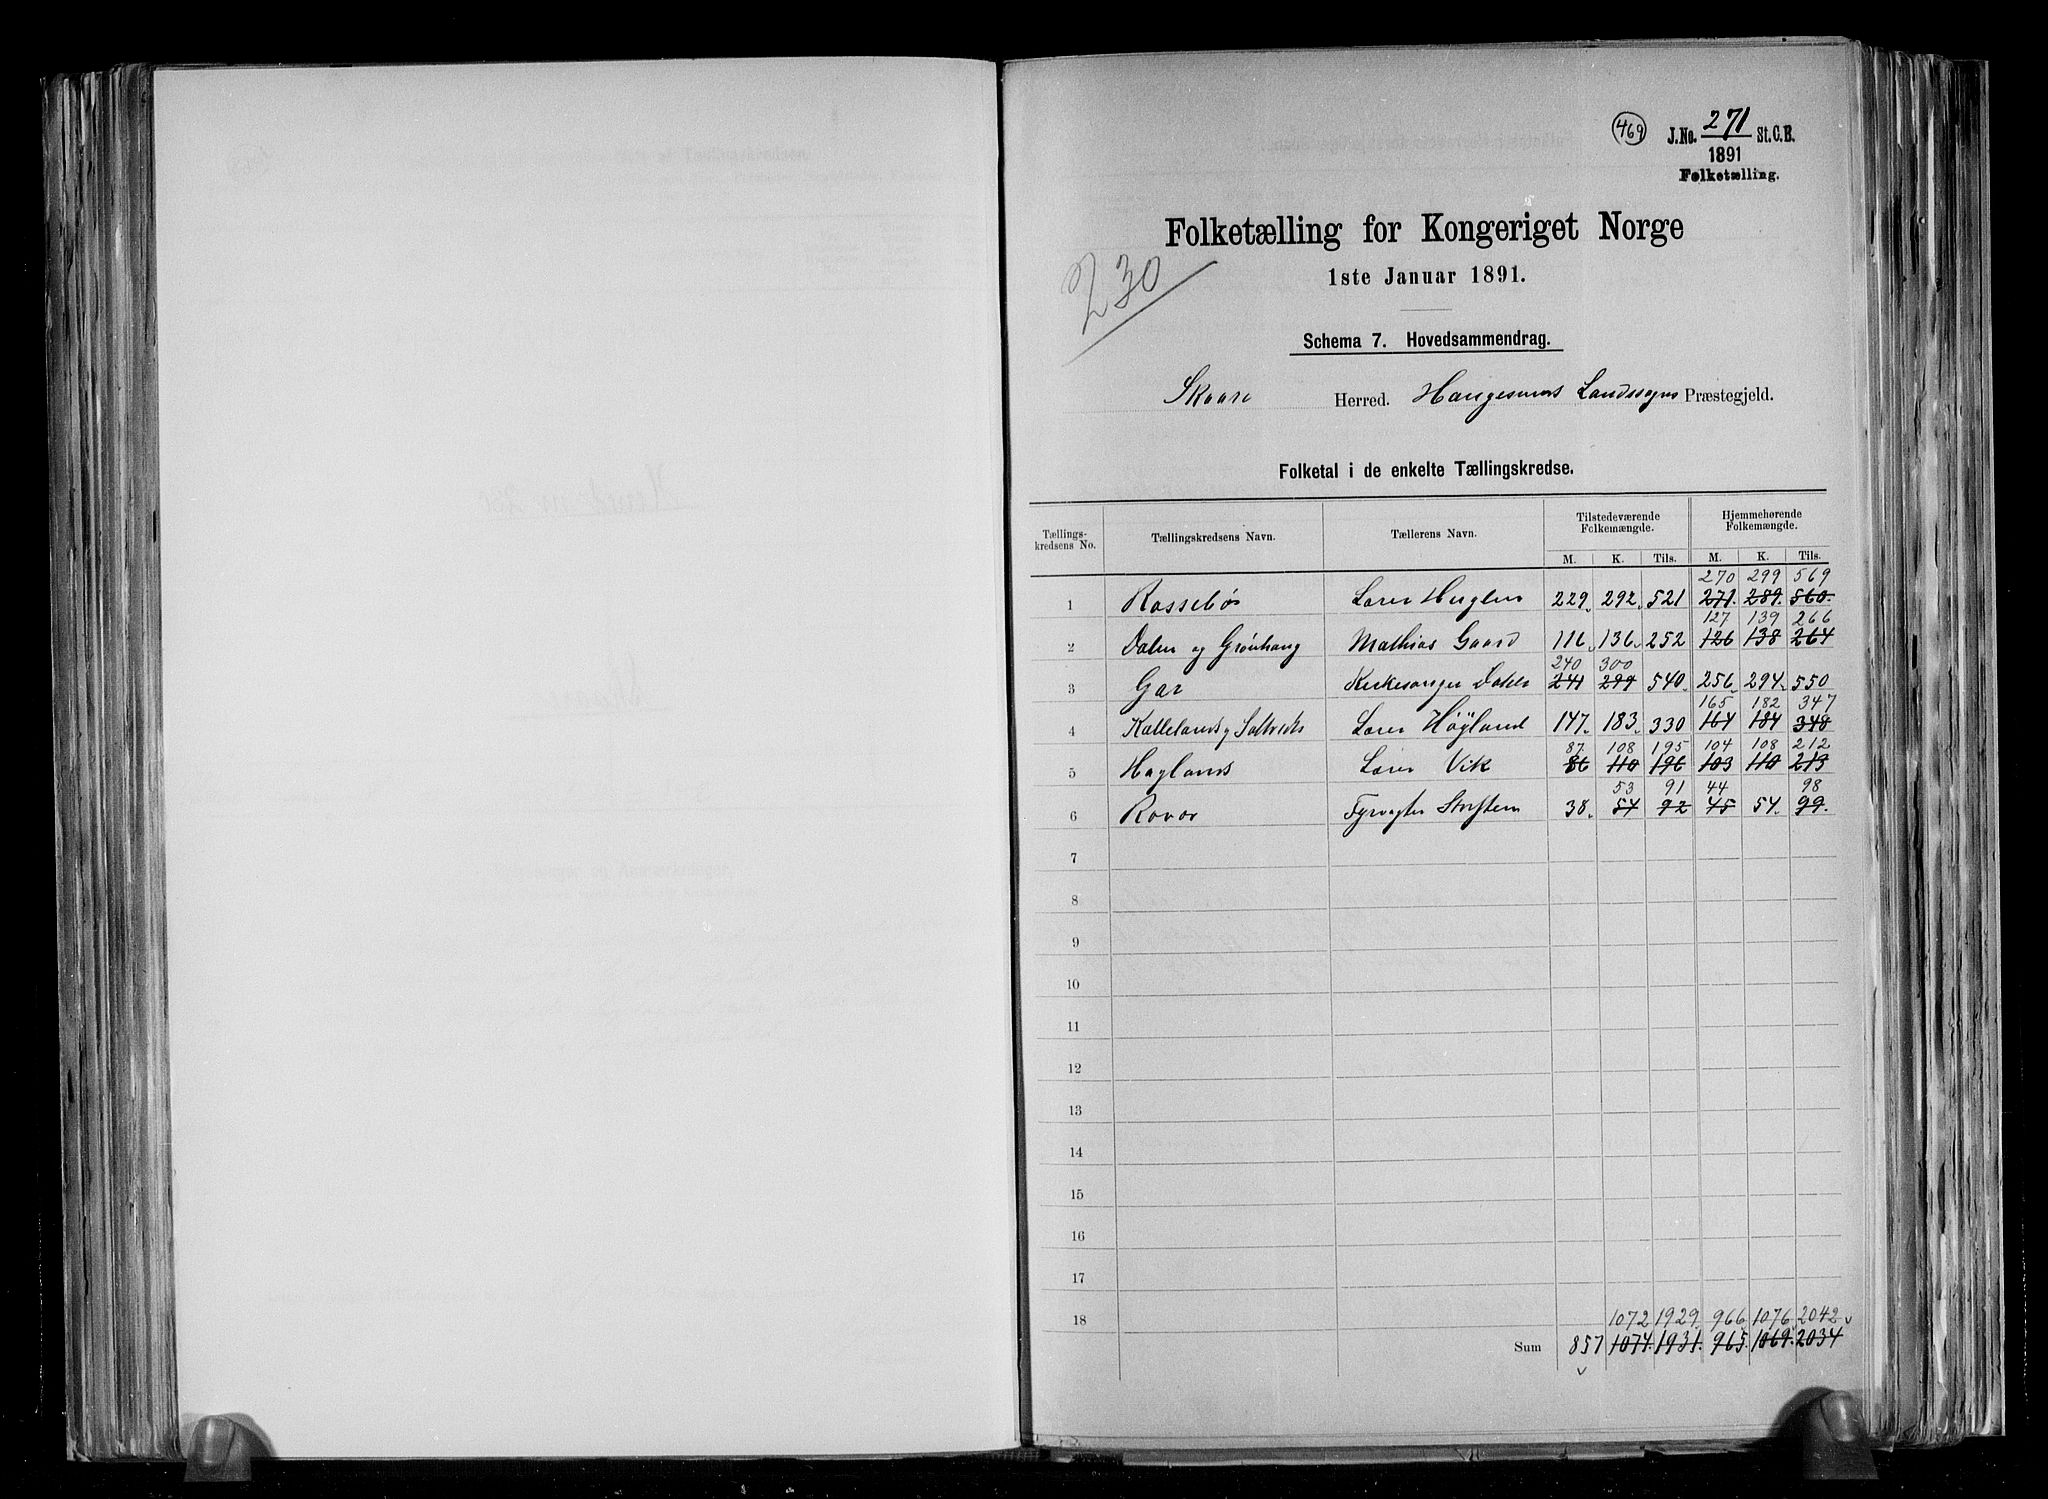 469
J.No. 271 St.C.B.
1891
Folketælling.
Folketælling for Kongeriget Norge
230
1ste Januar 1891.
Schema 7. Hovedsammendrag.
Skaare Herred. Haugesunds Landssogns Præstegjeld.
Folketal i de enkelte Tællingskredse.
Tællingskredsens No. Tællingskredsens Navn. Tællerens Navn. Tilstedeværende Folkemængde. Hjemmehørende Folkemængde.
M. K. Tils. M. K. Tils.
270 299 569
1 Rossebø Lærer 229. 292. 521 271. 289. 560.
127 139 266
2 Dalen og Grønhaug Mathias Gaard 116. 136. 252 126 138 264
240 300
3 Gar Kirkesanger 241 299 540. 256. 294. 550
165 182 347
4 Lærer Høyland 147. 183. 330 164 184 348
87 108 195 104 108 212
5 Haglands Lærer Vik 86 110 196 103 110 213
53 91 44 98
6 Røvær Fyrvogter 38. 54 92 45 54. 99.
7
8
9
10
11
12
13
14
15
16
17
18 1072 1929. 966 1076 2042
Sum 857 1074. 1931. 965. 1069. 2034